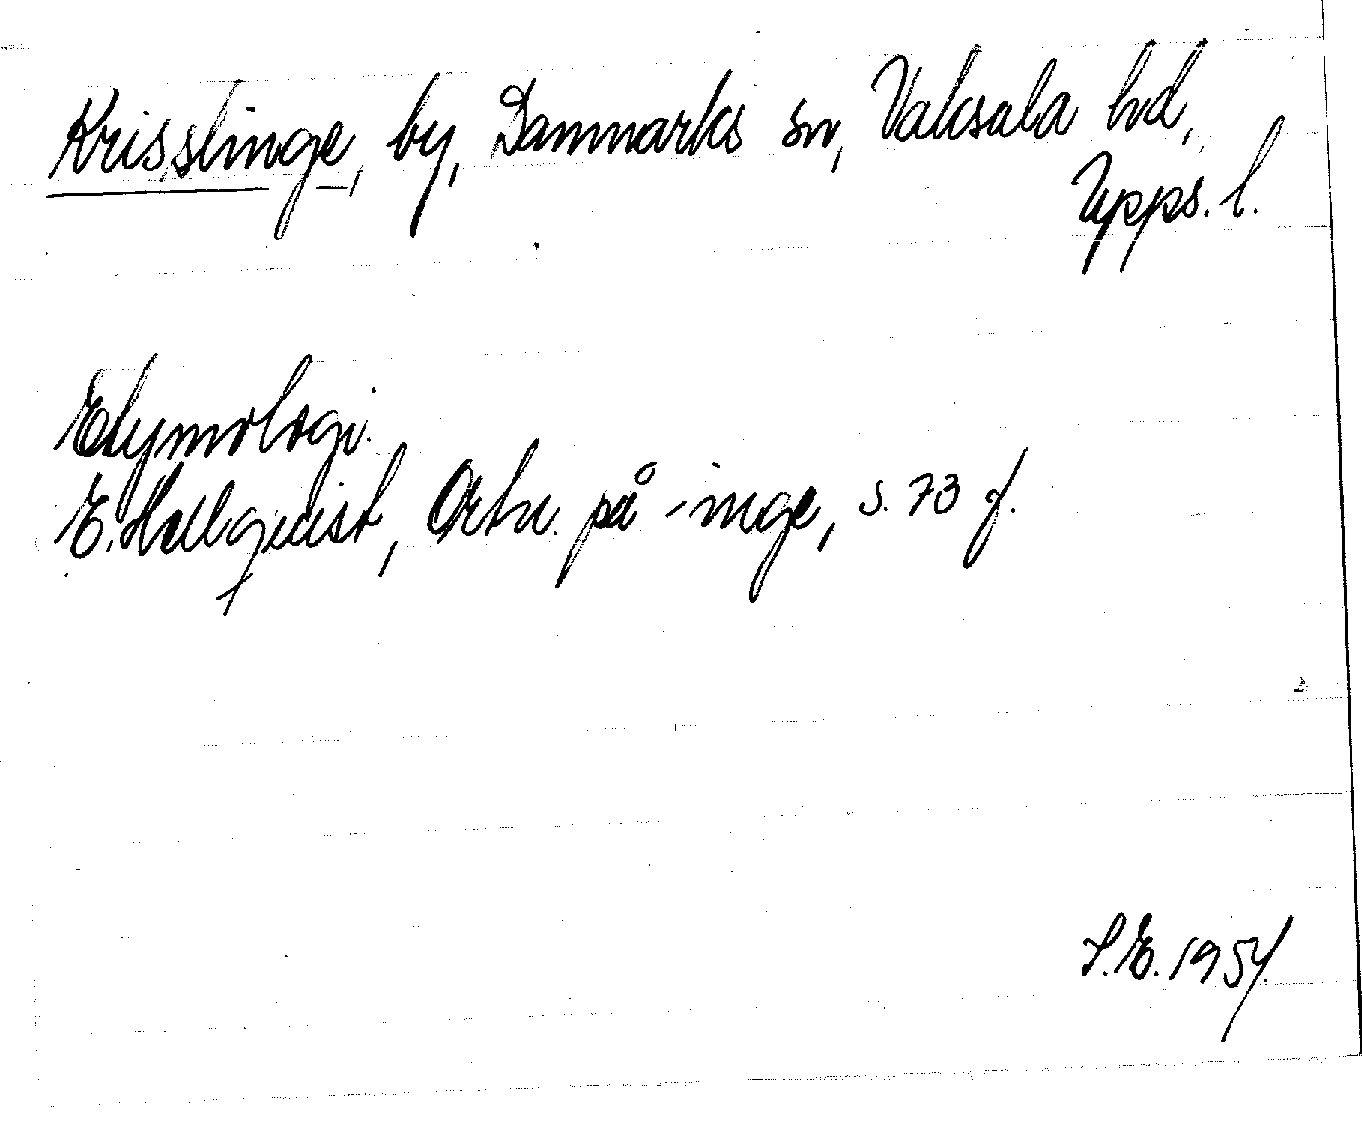 Krisslinge, by, Danmarks sn, Vaksala hd,
Upps. l.
Etymologi.
E. Hellquist, Ortn. på -inge, s. 73 f.
S.E. 1951.